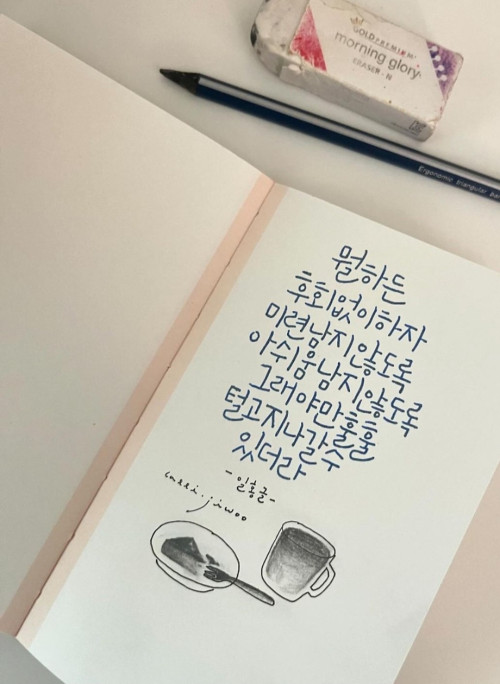 GOLD PREMIUM
morning glory
ERASER-N
Ergonomic triangular
뭘하든
후회없이하자
미련남지않도록
아쉬움남지않도록
그래야만훌훌
털고지나갈수
있더라
-일홍글-
calli.jiwoo